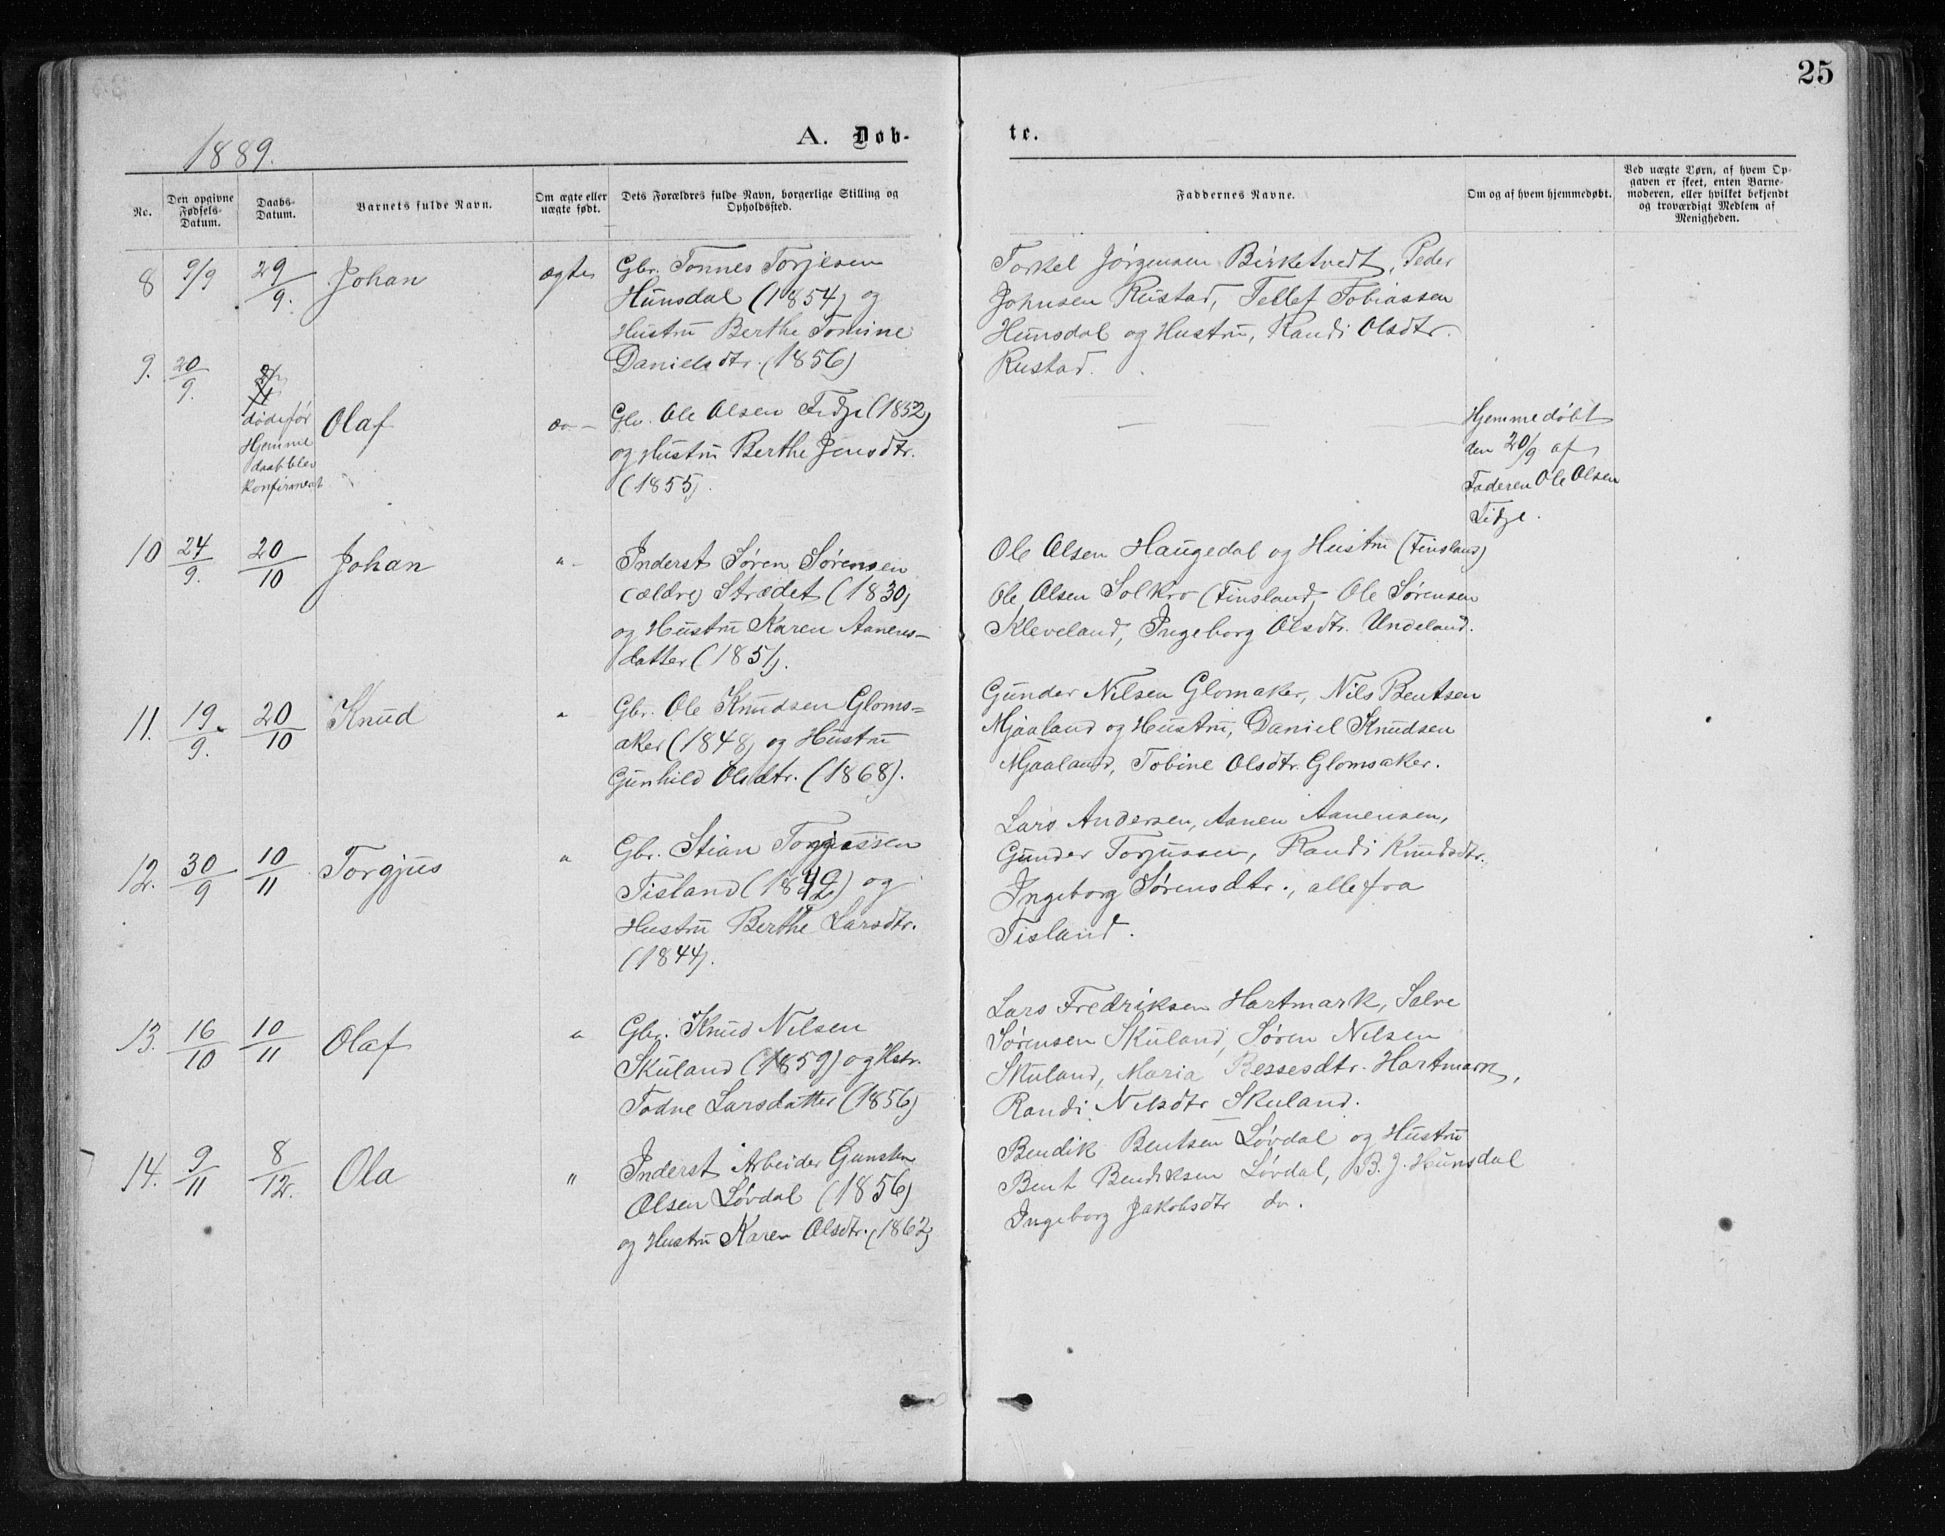 25
1889.
A. Døb-
te.
No.
Den opgivne
Fødsels-
Datum.
Daabs-
Datum.
Barnets fulde Navn.
Om ægte eller
uægte født.
Dets Forældres fulde Navn, borgerlige Stilling og
Opholdssted.
Faddernes Navne.
Om og af hvem hjemmedøbt.
Ved uægte Børn, af hvem Op-
gaven er skeet, enten Barne-
moderen, eller hvilket bekjendt
og troværdigt Medlem af
Menigheden.
8 9/9 29/9. Johan ægte
Gbr. Tønnes Torjesen
Hunsdal (1854) og
Hustru Berthe Tomine
Danielsdtr. (1856)
Torkel Jørgensen Birketvedt, Peder
Johnsen Rustad, Tellef Tobiassen
Hunsdal og Hustru, Randi Olsdtr.
Rustad.
9. 20/9.
døde før
Hjemme
daab blev
konfirmert
Olaf do -
Gbr. Ole Olsen Fidje (1852)
og Hustru Berthe Jensdtr.
(1855).
— —
Hjemmedøbt
den 20/9 af
Faderen Ole Olsen
Fidje.
10 24/9. 20/10 Johan "-
Inderst Søren Sørensen
(ældre) Strædet (1830)
og Hustru Karen Aanens-
datter (1851).
Ole Olsen Haugedal og Hustru (Finsland)
Ole Olsen Solkro (Finsland) Ole Sørensen
Kleveland, Ingeborg Olsdtr. Undeland.
11. 19/9. 20/10 Knud "
Gbr. Ole Knudsen Gloms=
aker (1848) og Hustru
Gunhild Olsdtr. (1868).
Gunder Nilsen Glomaker, Nils Bentsen
Mjaaland og Hustru, Daniel Knudsen
Mjaaland, Tobine Olsdtr. Glomsaker.
12. 30/9 10/11 Torgjus "
Gbr. Stian Torgjussen
Tisland (1842) og
Hustru Berthe Larsdtr.
(1844).
Lars Andersen, Aanen Aanensen,
Gunder Torjussen, Randi Knudsdtr.
Ingeborg Sørensdtr., alle fra
Tisland.
13. 16/10 10/11 Olaf "
Gbr. Knud Nilsen
Skuland (1859) og Hstr.
Todne Larsdatter (1856)
Lars Fredriksen Hartmark, Salve
Sørensen Skuland, Søren Nilsen
Skuland, Maria Bessesdtr. Hartmark,
Randi Nilsdtr Skuland.
14. 9/11 8/12. Ola "
Inderst Arbeider Gunsten
Olsen Løvdal (1856)
og Hustru Karen Olsdtr. (1862)
Bendik Bentsen Løvdal og Hustru
Bent Bendiksen Løvdal, B. J. Hunsdal
Ingeborg Jakobsdtr do.